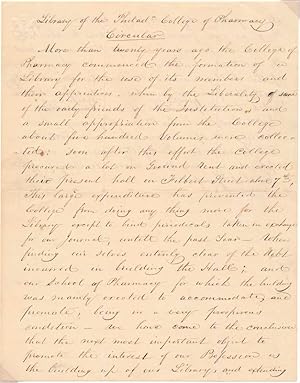 Library of the Philad. College of Pharmacy
Circular
More than twenty years ago, the College of
Pharmacy commenced the formation of a
Library for the use of its members and
their apprentices, when by the Liberality of some
of the early friends of the Institution, and
a small appropriation from the College
about five hundred Volumes were collec-
ted; soon after this effort the College
procured a lot on Ground Rent and erected
their present hall in Filbert Street above 7th.
This large expenditure has prevented the
College from doing any thing more for the
Library except to bind periodicals taken in exchange
for our Journal, untill the past Year — When
finding our selves entirely clear of the debt
incurred in building the Hall; and
our School of Pharmacy for which the building
was mainly erected to accommodate and
promote, being in a very prosperous
condition — we have come to the conclusion
that the next most important object to
promote the interest of our Profession is
the building up of our Library, and extending